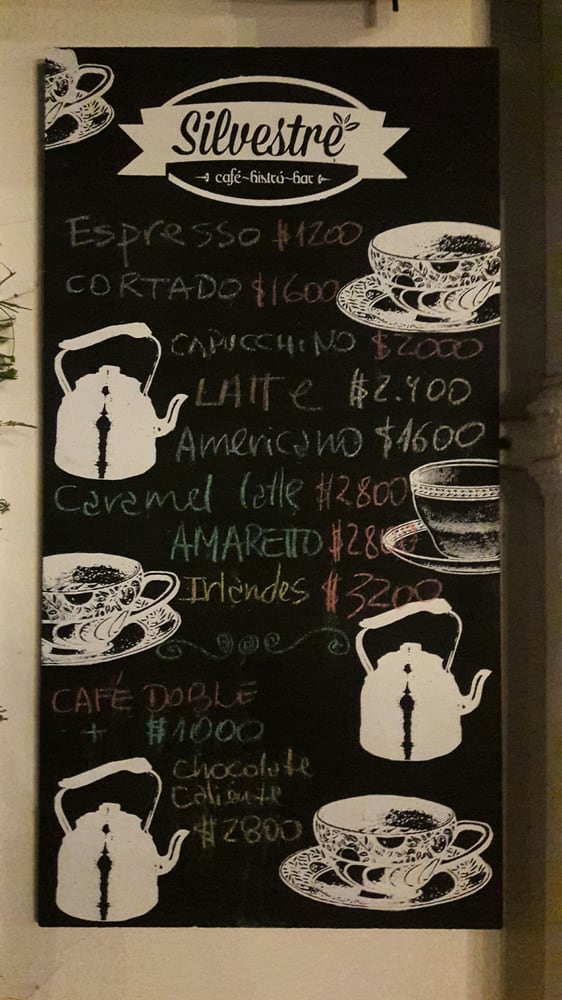 Silvestre
café~bistró~bar
Espresso $1200
CORTADO $1600
CAPUCCHINO $2000
LATTe $2.400
Americano $1600
Caramel latte $2800
AMARETTO $2800
Irlandes $3200
CAFÉ DOBLE
+ $1000
chocolate
caliente
$2800